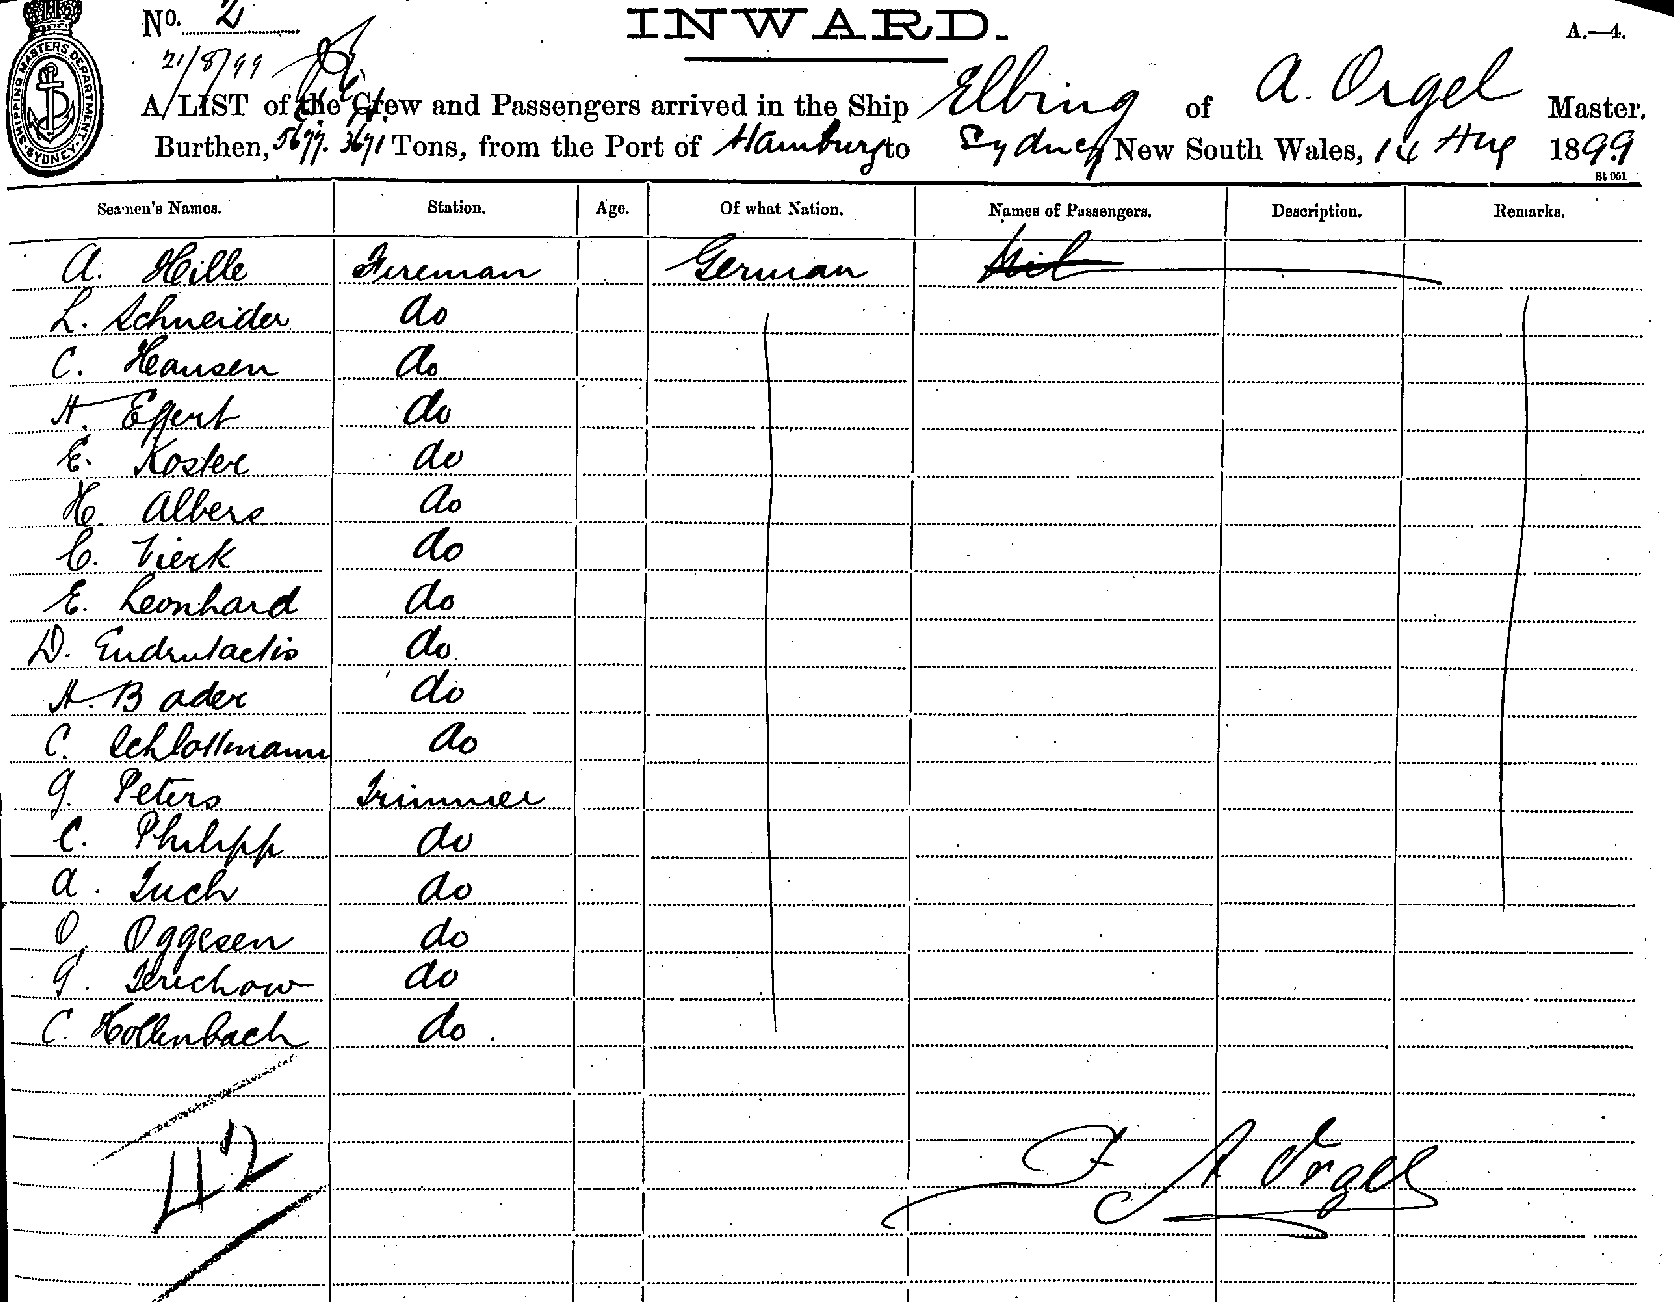 No. 2
INWARD.
A.—4.
SHIPPING MASTERS DEPARTMENT SYDNEY
21/8/99
A LIST of the Crew and Passengers arrived in the Ship Elbing of A. Orgel Master.
Burthen, 5677. 3671 Tons, from the Port of Hamburg to Sydney New South Wales, 14 Aug 1899
Bt 061
Seamen's Names. Station. Age. Of what Nation. Names of Passengers. Description. Remarks.
A. Hille Fireman German Nil
L. Schneider do
C. Hansen do
A. Effert do
E. Koster do
H. Albers do
C. Vierk do
E. Leonhard do
D. do
A. Bader do
C. Schlottmann do
G. Peters Trimmer
C. Philipp do
A. Tuch do
O. Oggesen do
G. Jerichow do
C. Hollenbach do
42
A Orgel